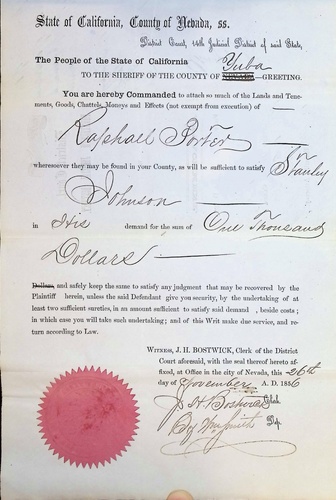 State of California, County of Nevada, ss.
District Court, 14th Judicial District of said State,
The People of the State of California
TO THE SHERIFF OF THE COUNTY OF Yuba —GREETING.
You are hereby Commanded to attach so much of the Lands and Tene-
ments, Goods, Chattels, Moneys and Effects (not exempt from execution) of
Raphael Porter
wheresoever they may be found in your County, as will be sufficient to satisfy Stanley
Johnson
in His demand for the sum of One Thousand
Dollars
Dollars, and safely keep the same to satisfy any judgment that may be recovered by the
Plaintiff herein, unless the said Defendant give you security, by the undertaking of at
least two sufficient sureties, in an amount sufficient to satisfy said demand, besides costs;
in which case you will take such undertaking; and of this Writ make due service, and re-
turn according to Law.
WITNESS, J. H. BOSTWICK, Clerk of the District
Court aforesaid, with the seal thereof hereto af-
fixed, at Office in the city of Nevada, this 26th
day of November A. D. 1856
J. H. Bostwick Clerk.
By Wm Smith Dep.